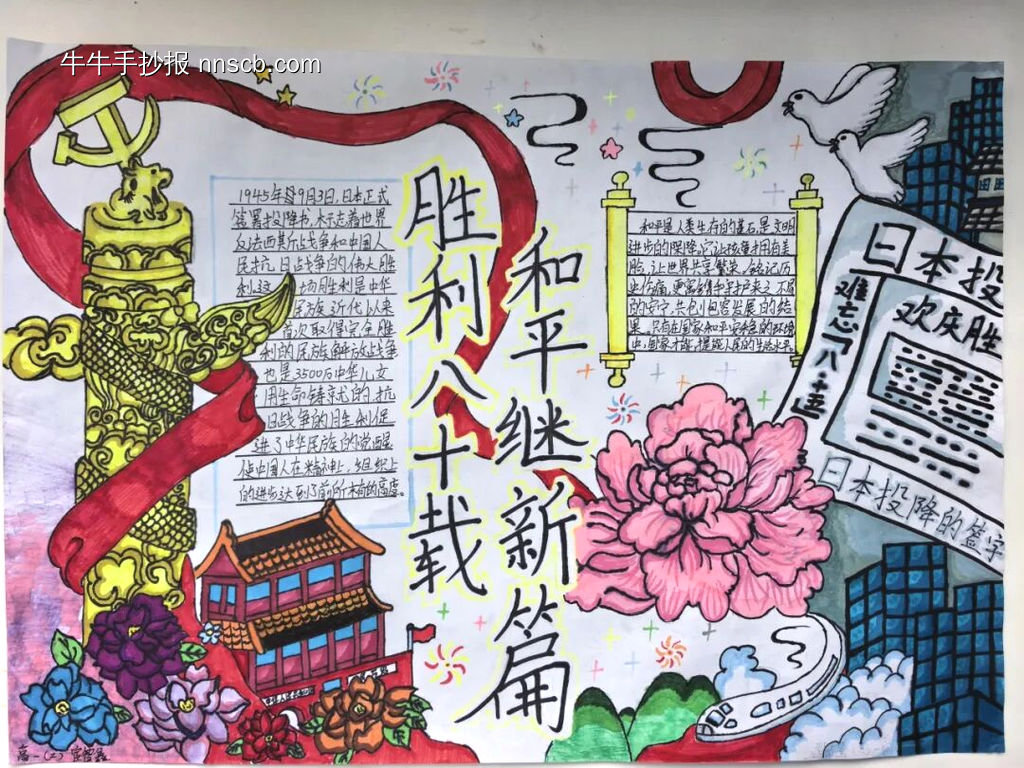 牛牛手抄报 nnscb.com
胜利八十载
和平继新篇
1945年9月3日,日本正式
签署投降书,标志着世界
反法西斯战争和中国人
民抗日战争的伟大胜
利,这 场胜利是中华
民族近代以来
首次取得完全胜
利的民族解放战争
也是3500万中华儿女
用生命铸就的抗
日战争的胜利促
进了中华民族的觉醒
使中国人在精神上,组织上
的进步达到了前所未有的高度。
和平是人类生存的基石,是文明
进步的保障,它让孩童拥有笑
脸,让世界共享繁荣,铭记历
史伤痛,更需
的安宁,
果,只有在国家和平安稳的环境
中,国家才能,提强人民的生活水平
日本投
欢庆胜
难忘八一五
日本投降的签字
高一(2)